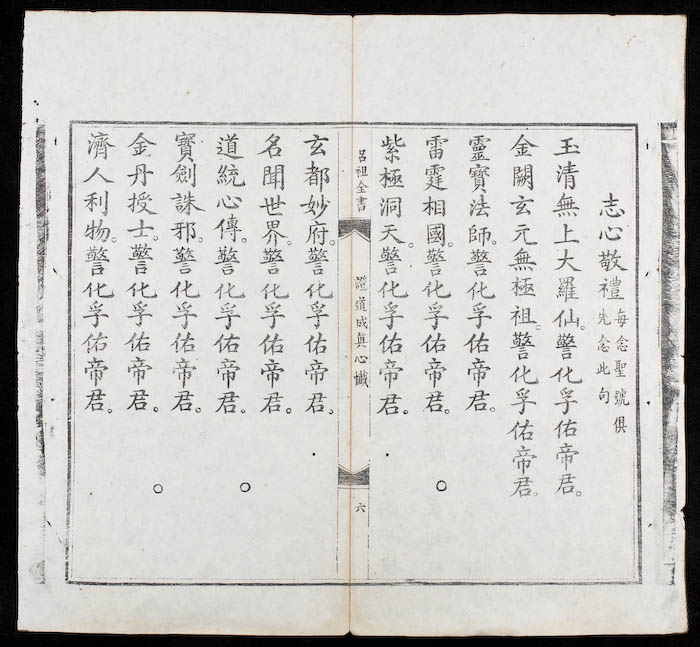 志心敬禮 每念聖號俱
先念此句
玉清無上大羅仙。警化孚佑帝君。
金闕玄元無極祖。警化孚佑帝君。
靈寶法師。警化孚佑帝君。
雷霆相國。警化孚佑帝君。○
紫極洞天。警化孚佑帝君。
呂祖全書 證道成真心懺 六
玄都妙府。警化孚佑帝君。
名聞世界。警化孚佑帝君。
道統心傳。警化孚佑帝君。○
寶劍誅邪。警化孚佑帝君。
金丹授士。警化孚佑帝君。○
濟人利物。警化孚佑帝君。